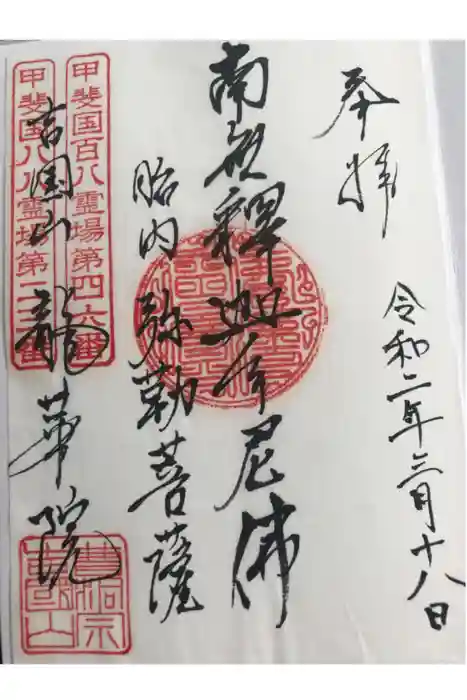 奉拝
令和二年三月十八日
南無釋迦牟尼佛
胎内弥勒菩薩
甲斐国百八霊場第四六番
甲斐国八八霊場第二番
吉国山 龍華院
曹洞宗
吉国山